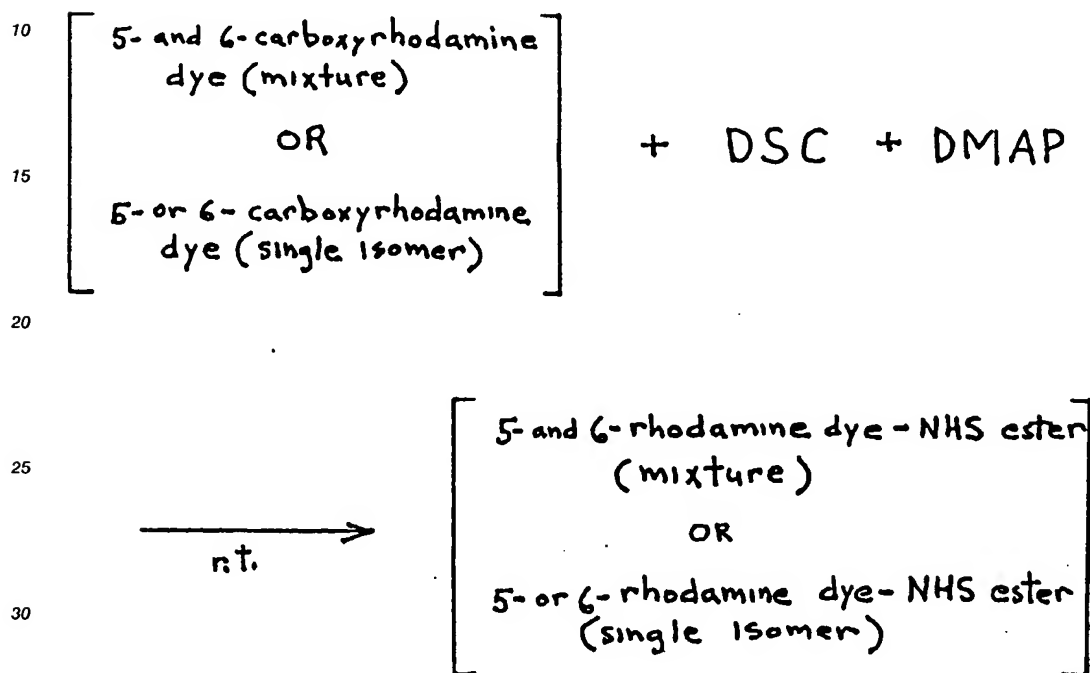 10
5- and 6-carboxyrhodamine
dye (mixture)
OR
15
5- or 6-carboxyrhodamine
dye (single isomer)
+ DSC + DMAP
20
5- and 6-rhodamine dye-NHS ester
25
(mixture)
r.t.
OR
5- or 6-rhodamine dye-NHS ester
30
(single isomer)